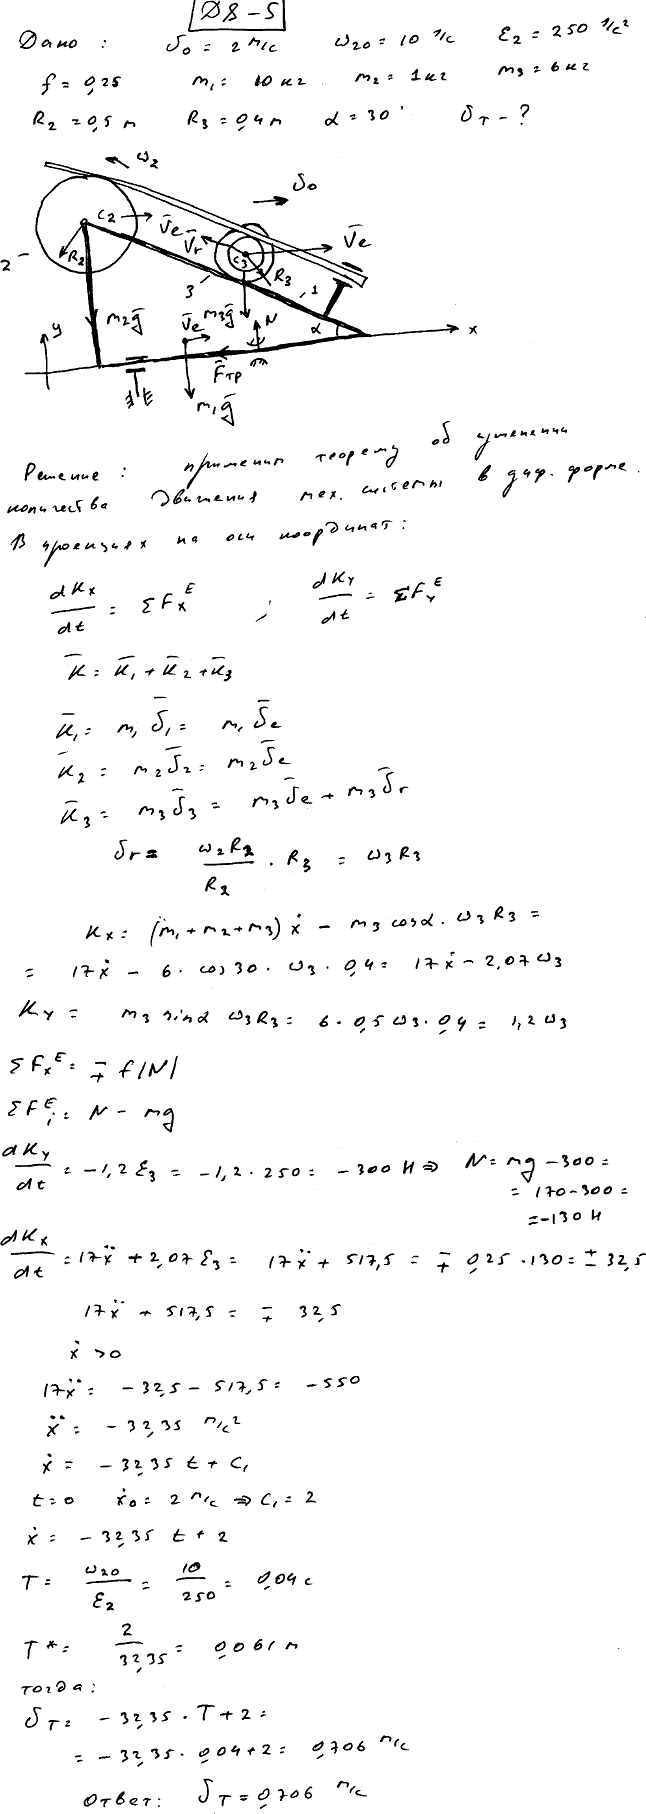 D8-5
Дано : υ₀ = 2 м/с ω₂₀ = 10 1/с ε₂ = 250 1/с²
f = 0,25 m₁ = 10 кг m₂ = 1 кг m₃ = 6 кг
R₂ = 0,5 м R₃ = 0,4 м α = 30° υ_T - ?
ω₂
υ₀
C₂ V̄e V̄r V̄e
R₂ C₃ R₃
2 3 1
m₂ḡ m₃ḡ N α x
y V̄e
F̄тр
m₁ḡ
Решение : применим теорему об изменении
количества движения мех. системы в диф. форме.
В проекциях на оси координат:
dKx/dt = ΣFx^E ; dKy/dt = ΣFy^E
K̄ = K̄₁ + K̄₂ + K̄₃
K̄₁ = m₁ῡ₁ = m₁ῡe
K̄₂ = m₂ῡ₂ = m₂ῡe
K̄₃ = m₃ῡ₃ = m₃ῡe + m₃ῡr
υr = ω₂R₂/R₂ · R₃ = ω₃R₃
Kx = (m₁+m₂+m₃)ẋ - m₃cosα · ω₃R₃ =
= 17ẋ - 6 · cos30 · ω₃ · 0,4 = 17ẋ - 2,07ω₃
Ky = m₃ sinα ω₃R₃ = 6 · 0,5ω₃ · 0,4 = 1,2ω₃
ΣFx^E = ∓ f|N|
ΣF_i^E = N - mg
dKy/dt = -1,2ε₃ = -1,2 · 250 = -300 Н ⇒ N = mg - 300 =
= 170-300 =
= -130 Н
dKx/dt = 17ẍ + 2,07ε₃ = 17ẍ + 517,5 = ∓ 0,25 · 130 = ± 32,5
17ẍ + 517,5 = ∓ 32,5
ẋ > 0
17ẍ = -32,5 - 517,5 = -550
ẍ = -32,35 м/с²
ẋ = -32,35 t + C₁
t = 0 ẋ₀ = 2 м/с ⇒ C₁ = 2
ẋ = -32,35 t + 2
T = ω₂₀/ε₂ = 10/250 = 0,04 с
T* = 2/32,35 = 0,061 м
тогда:
υ_T = -32,35 · T + 2 =
= -32,35 · 0,04 + 2 = 0,706 м/с
Ответ: υ_T = 0,706 м/с